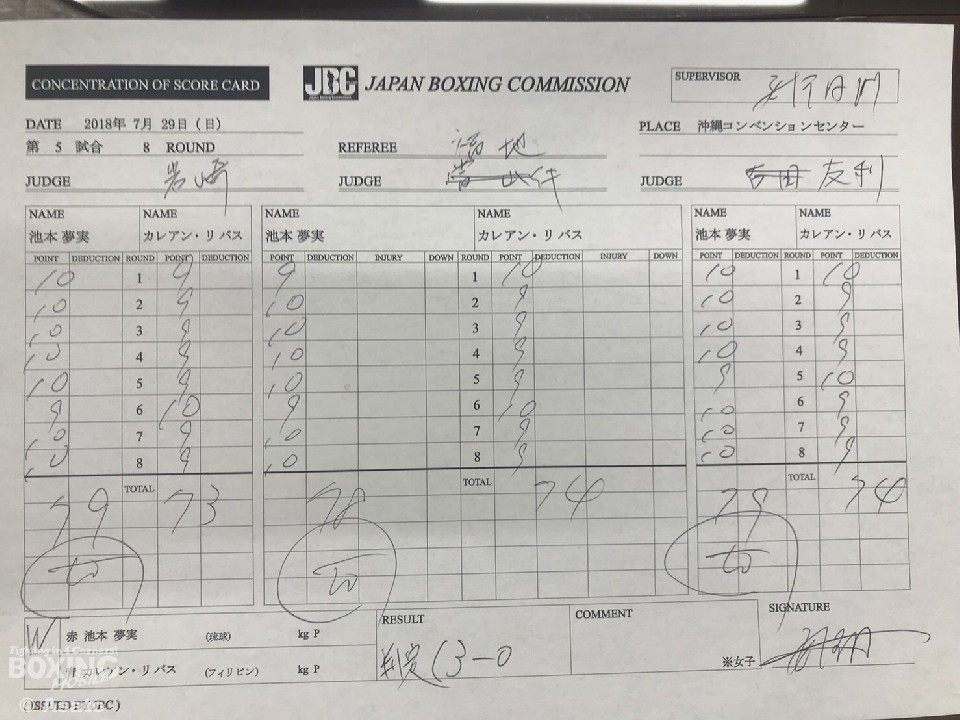 CONCENTRATION OF SCORE CARD JBC JAPAN BOXING COMMISSION SUPERVISOR
DATE 2018年 7月 29日 (日) PLACE 沖縄コンベンションセンター
第 5 試合 8 ROUND REFEREE 福地
JUDGE 岩崎 JUDGE JUDGE 友利
NAME NAME NAME NAME NAME NAME
池本 夢実 カレアン・リバス 池本 夢実 カレアン・リバス 池本 夢実 カレアン・リバス
POINT DEDUCTION ROUND POINT DEDUCTION POINT DEDUCTION INJURY DOWN ROUND POINT DEDUCTION INJURY DOWN POINT DEDUCTION ROUND POINT DEDUCTION
10 1 9 9 1 10 10 1 10
10 2 9 10 2 9 10 2 9
10 3 9 10 3 9 10 3 9
10 4 9 10 4 9 10 4 9
10 5 9 10 5 9 9 5 10
9 6 10 9 6 10 10 6 9
10 7 9 10 7 9 10 7 9
10 8 9 10 8 9 10 8 9
79 TOTAL 73 78 TOTAL 74 79 TOTAL 74
W 赤 池本 夢実 (琉球) kg P RESULT COMMENT SIGNATURE
カレアン・リバス (フィリピン) kg P 判定(3-0 ※女子
Fighting in a Corner!
BOXING
MOBILE